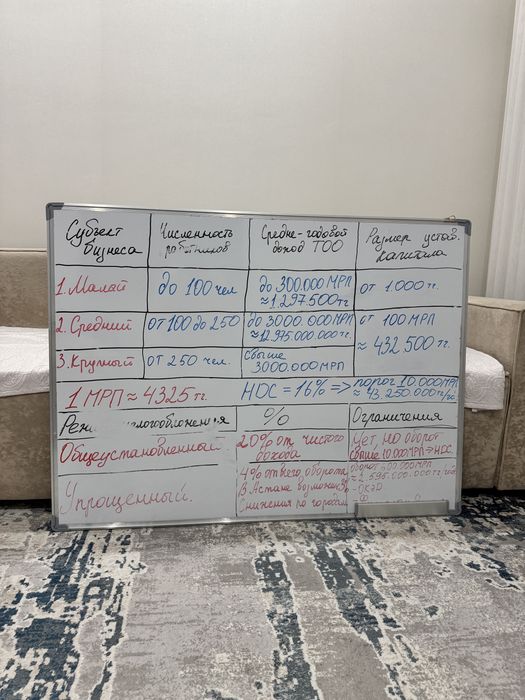 Субъект бизнеса
Численность работников
Средне-годовой доход ТОО
Размер устав. капитала
1. Малый
до 100 чел
до 300.000 МРП
≈ 1.297.500 тг.
от 1.000 тг.
2. Средний
от 100 до 250
до 3000.000 МРП
≈ 12.975.000.000 тг.
от 100 МРП
≈ 432.500 тг.
3. Крупный
от 250 чел.
свыше
3000.000 МРП
1 МРП ≈ 4325 тг.
НДС = 16% => порог 10.000 МРП
≈ 43.250.000 тг/
логообложения
%
Ограничения
Общеустановленный
20% от чистого
дохода
Нет, но оборот
свыше 10.000 МРП => НДС.
Упрощенный.
4% от его оборота
В Астане
Снижения по городам
оборот 600.000 МРП
≈ 2.595.000.000 тг/год
- ОКЭД